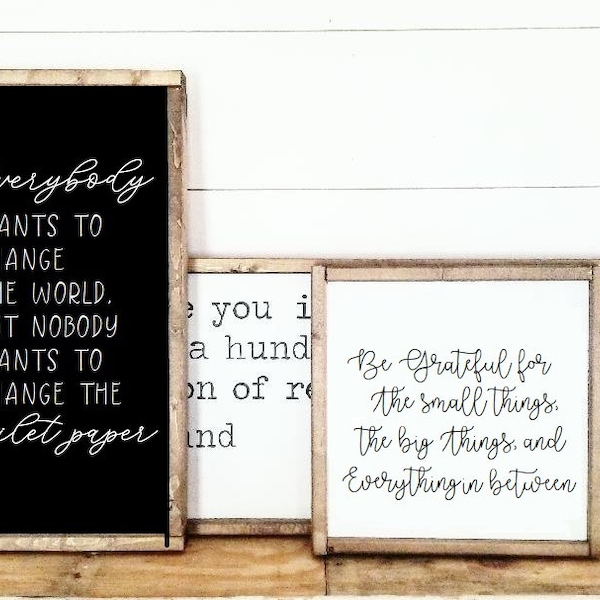 verybody
ANTS TO
ANGE
E WORLD.
T NOBODY
ANTS TO
ANGE THE
ilet paper
e you i
a hund
on of re
and
Be Grateful for
the small things,
the big things, and
Everything in between